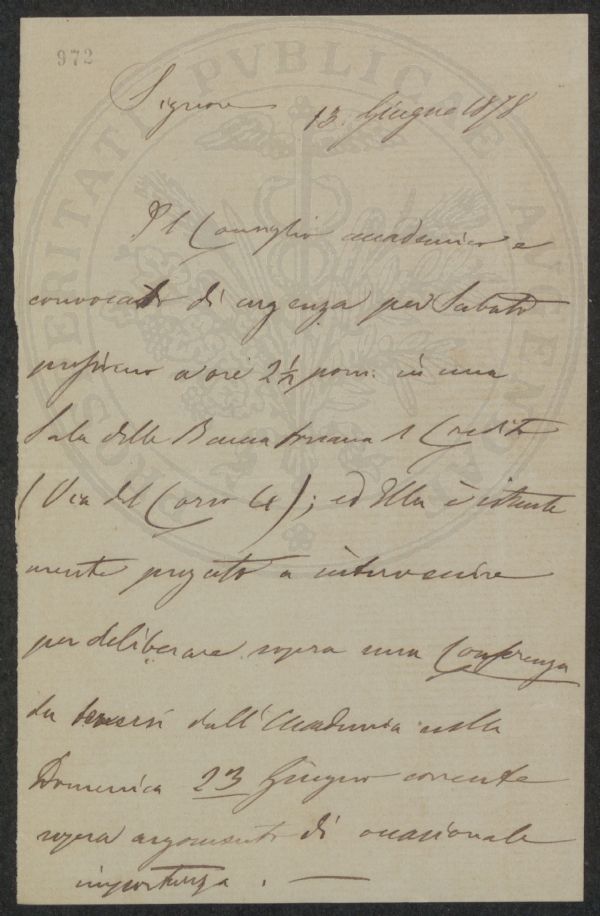 972
Signore
13. Giugno 1878
Il Consiglio accademico è
convocato di urgenza per Sabato
prossimo a ore 2½ pom. in una
Sala della Banca Toscana di Credito
(Via del Corso); ed Ella è istante
mente pregato a intervenire
per deliberare sopra una Conferenza
da tenersi dall'Accademia nella
Domenica 23 Giugno corrente
sopra argomento di occasionale
importanza. —